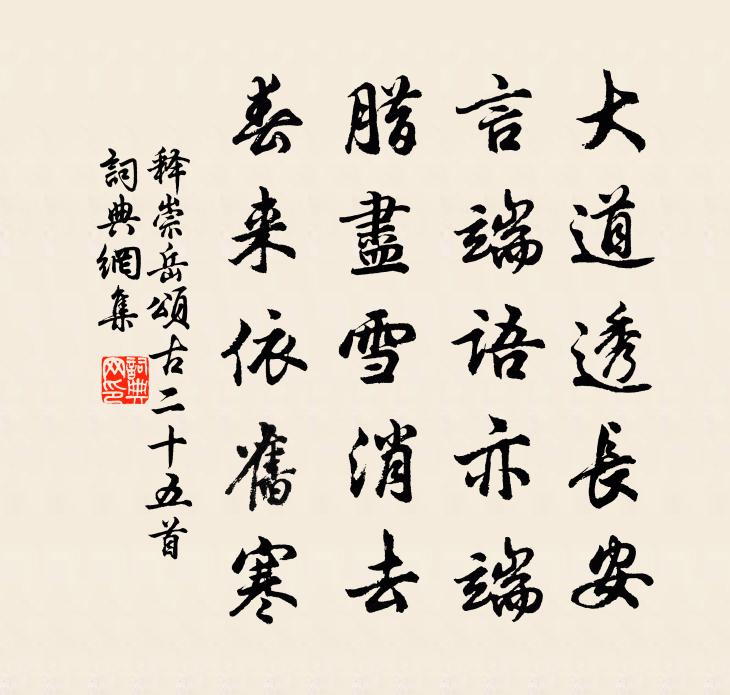 大道透長安
言端語亦端
腊盡雪消去
春来依舊寒
释崇岳頌古二十五首
詞典網集
詞典网印